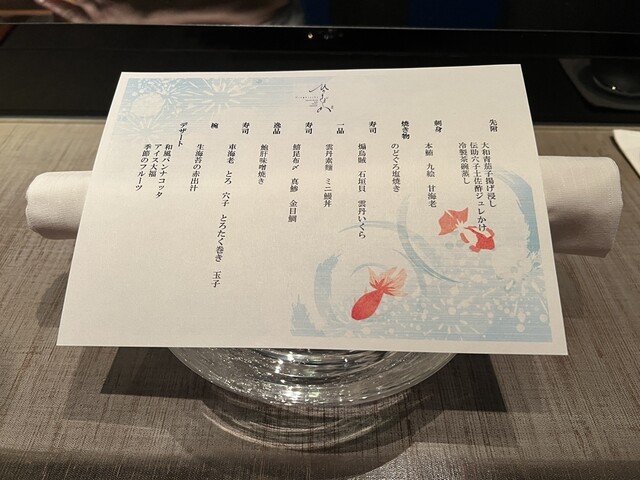 先附
大和青茄子揚げ浸し
伝助穴子土佐酢ジュレかけ
冷製茶碗蒸し
刺身
本鮪 九絵 甘海老
焼き物
のどぐろ塩焼き
寿司
煽烏賊 石垣貝 雲丹いくら
一品
雲丹素麺 ミニ鰻丼
寿司
鱚昆布〆 真鯵 金目鯛
逸品
鮑肝味噌焼き
寿司
車海老 とろ 穴子 とろたく巻き 玉子
椀
生海苔の赤出汁
デザート
和風パンナコッタ
アイス大福
季節のフルーツ